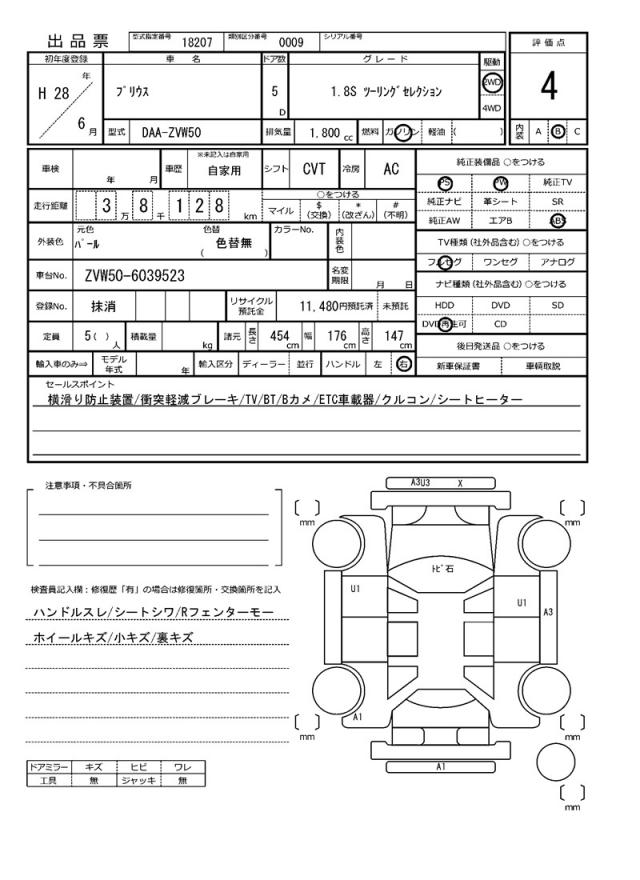 出品票 型式指定番号 18207 類別区分番号 0009 シリアル番号
初年度登録 車名 ドア数 グレード 駆動 評価点
H 28 年 6 月 プリウス 5 D 1.8S ツーリングセレクション 2WD 4WD 4
型式 DAA-ZVW50 排気量 1,800 cc 燃料 ガソリン 軽油 ( ) 内装 A B C
車検 年 月 車歴 ※未記入は自家用 自家用 シフト CVT 冷房 AC
走行距離 3 万 8 千 1 2 8 km ○をつける
マイル $ (交換) * (改ざん) # (不明)
外装色 元色 パール 色替 ( 色替無 ) カラーNo. 内装色
車台No. ZVW50-6039523 名変期限 月 日
登録No. 抹消 リサイクル預託金 11,480円預託済 未預託
定員 5 ( ) 人 積載量 kg 諸元 長さ 454 cm 幅 176 cm 高さ 147 cm
輸入車のみ⇒ モデル年式 年 輸入区分 ディーラー 並行 ハンドル 左 右
純正装備品 ○をつける
PS PW 純正TV
純正ナビ 革シート SR
純正AW エアB ABS
TV種類 (社外品含む) ○をつける
フルセグ ワンセグ アナログ
ナビ種類 (社外品含む) ○をつける
HDD DVD SD
DVD再生可 CD
後日発送品 ○をつける
新車保証書 車輌取説
セールスポイント
横滑り防止装置/衝突軽減ブレーキ/TV/BT/Bカメ/ETC車載器/クルコン/シートヒーター
注意事項・不具合箇所
検査員記入欄：修復歴「有」の場合は修復箇所・交換箇所を記入
ハンドルスレ/シートシワ/Rフェンターモー
ホイールキズ/小キズ/裏キズ
ドアミラー キズ ヒビ ワレ
工具 無 ジャッキ 無
A3U3 X
mm mm
トビ石
U1 U1 A3
A1
mm mm
A1
mm